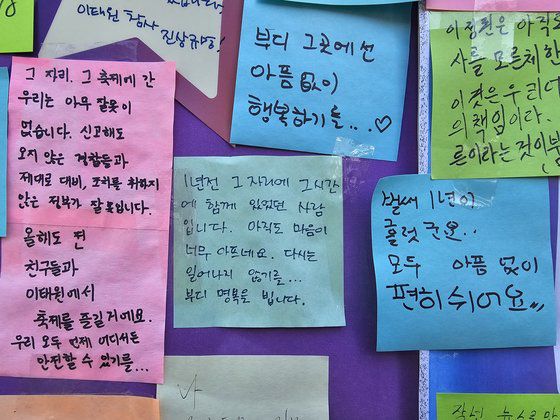 이태원 참사 진상규명
부디 그곳에선
아픔 없이
행복하기를...♡
이 정권은 아직도
사를 모른체 한
이것은 우리다
의 책임이다.
론이라는 것이
그 자리. 그 축제에 간
우리는 아무 잘못이
없습니다. 신고해도
오지 않은 경찰들과
제대로 대비, 조치를 취하지
않은 정부가 잘못입니다.
올해도 전
친구들과
이태원에서
축제를 즐길거에요.
우리 모두 언제 어디서든
안전할 수 있기를...
1년전 그 자리에 그시간
에 함께 있었던 사람
입니다. 아직도 마음이
너무 아프네요. 다시는
일어나지 않기를...
부디 명복을 빕니다.
벌써 1년이
흘렀군요..
모두 아픔 없이
편히 쉬어요,,
나